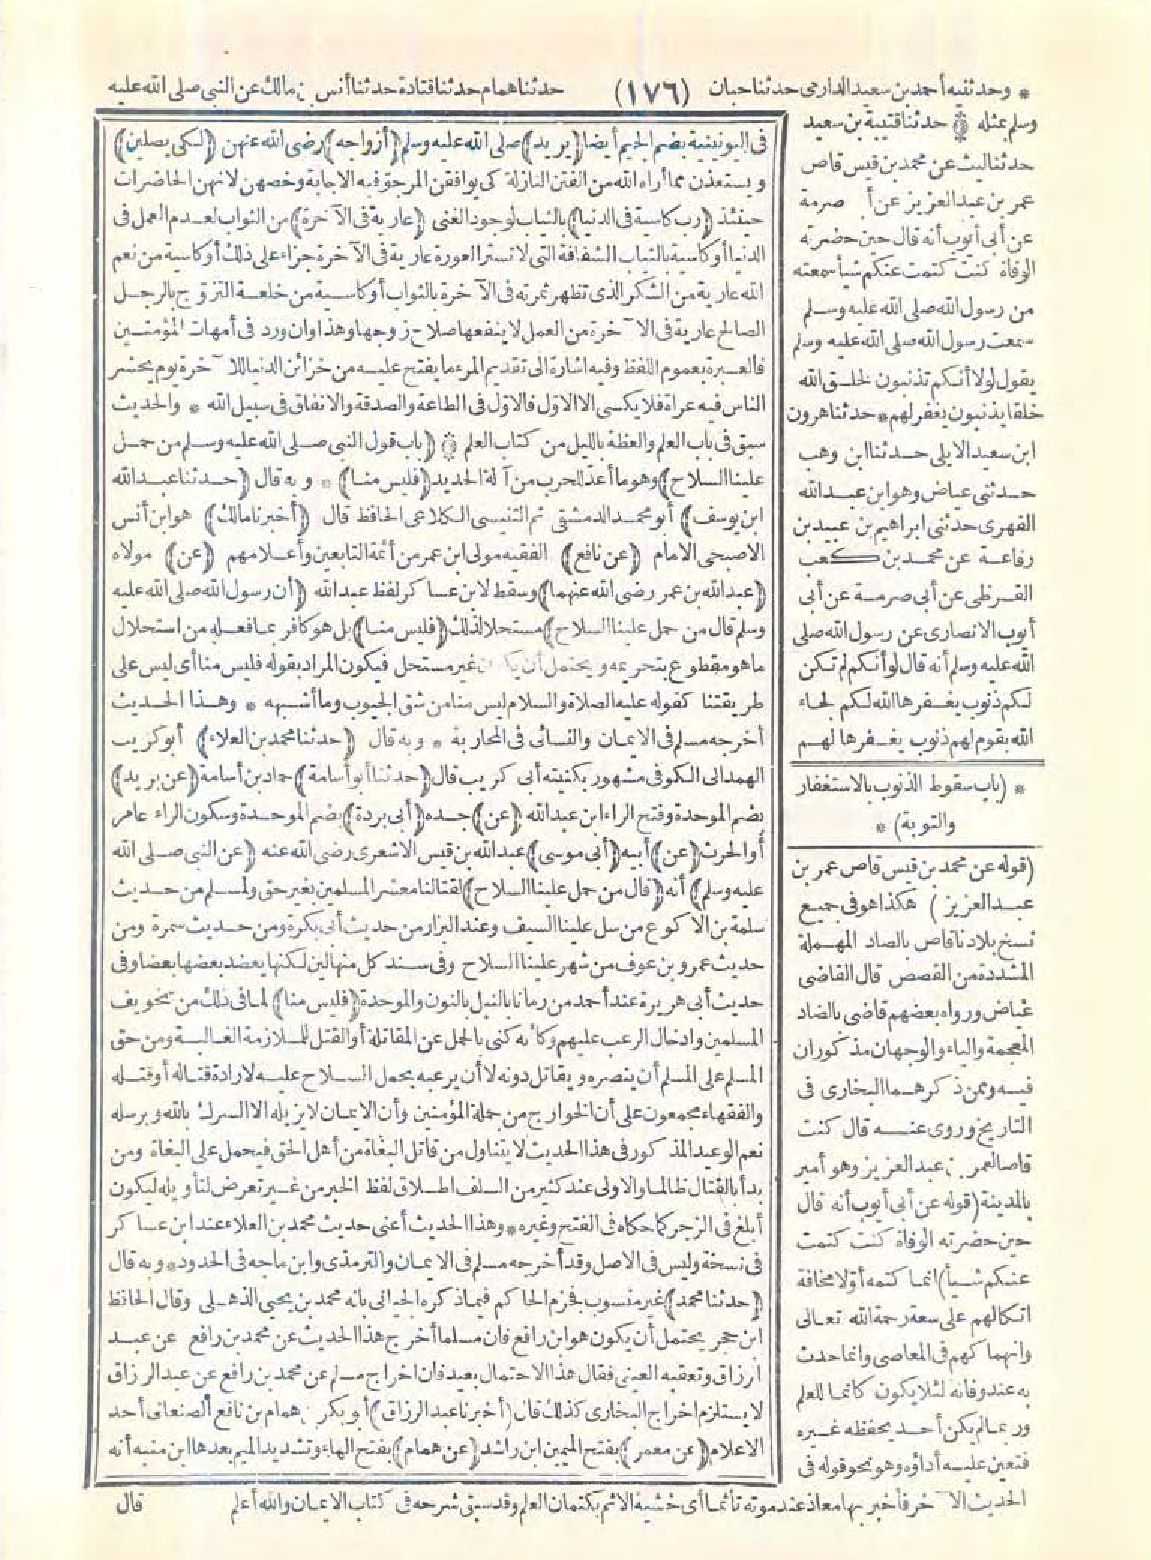 * وحدثنيه أحمد بن سعيد الدارمى حدثنا حبان (١٧٦) حدثنا همام حدثنا قتادة حدثنا أنس بن مالك عن النبى صلى الله عليه
وسلم بمثله * حدثنا قتيبة بن سعيد
حدثنا ليث عن محمد بن قيس قاص
عمر بن عبد العزيز عن أبى صرمة
عن أبى أيوب أنه قال حين حضرته
الوفاة كنت كتمت عنكم شيأ سمعته
من رسول الله صلى الله عليه وسلم
سمعت رسول الله صلى الله عليه وسلم
يقول لولا أنكم تذنبون لخلق الله
خلقا يذنبون يغفر لهم * حدثنا هرون
ابن سعيد الايلى حدثنا ابن وهب
حدثنى عياض وهو ابن عبد الله
الفهرى حدثنى ابراهيم بن عبيد بن
رفاعة عن محمد بن كعب
القرظى عن أبى صرمة عن أبى
أيوب الانصارى عن رسول الله صلى
الله عليه وسلم أنه قال لو أنكم لم تكن
لكم ذنوب يغفرها الله لكم لجاء
الله بقوم لهم ذنوب يغفرها لهم
* (باب سقوط الذنوب بالاستغفار
والتوبة) *
(قوله عن محمد بن قيس قاص عمر بن
عبد العزيز) هكذا هو فى جميع
نسخ بلادنا قاص بالصاد المهملة
المشددة من القصص قال القاضى
عياض ورواه بعضهم قاضى بالضاد
المعجمة والياء والوجهان مذكوران
فيه وممن ذكرهما البخارى فى
التاريخ وروى عنه قال كنت
قاصا لعمر بن عبد العزيز وهو أمير
بالمدينة (قوله عن أبى أيوب أنه قال
حين حضرته الوفاة كنت كتمت
عنكم شيأ) انما كتمه أولا مخافة
اتكالهم على سعة رحمة الله تعالى
وانهماكهم فى المعاصى وانما حدث
به عند وفاته لئلا يكون كاتما للعلم
وربما لم يكن أحد يحفظه غيره
فتعين عليه أداؤه وهو نحو قوله فى
الحديث الآخر فأخبر بها معاذ عند موته تأثما أى خشية الاثم بكتمان العلم وقد سبق شرحه فى كتاب الايمان والله أعلم
فى اليونينية بضم الجيم أيضا (يريد) صلى الله عليه وسلم (أزواجه) رضى الله عنهن (لكى يصلين)
ويستعذن مما أراه الله من الفتن النازلة كى يوافقن المرجو فيه الاجابة وخصهن لانهن الحاضرات
حينئذ (رب كاسية فى الدنيا) بالثياب لوجود الغنى (عارية فى الآخرة) من الثواب لعدم العمل فى
الدنيا أو كاسية بالثياب الشفافة التى لا تستر العورة عارية فى الآخرة جزاء على ذلك أو كاسية من نعم
الله عارية من الشكر الذى تظهر ثمرته فى الآخرة بالثواب أو كاسية من خلعة التزوج بالرجل
الصالح عارية فى الآخرة من العمل لا ينفعها صلاح زوجها وهذا وان ورد فى أمهات المؤمنين
فالعبرة بعموم اللفظ وفيه اشارة الى تقديم المرء ما يفتح عليه من خزائن الدنيا للآخرة يوم يحشر
الناس فيه عراة فلا يكسى الا الاول فالاول فى الطاعة والصدقة والانفاق فى سبيل الله * والحديث
سبق فى باب العلم والعظة بالليل من كتاب العلم * (باب قول النبى صلى الله عليه وسلم من حمل
علينا السلاح) وهو ما أعد للحرب من آلة الحديد (فليس منا) * وبه قال (حدثنا عبد الله
ابن يوسف) أبو محمد الدمشقى ثم التنيسى الكلاعى الحافظ قال (أخبرنا مالك) هو ابن أنس
الاصبحى الامام (عن نافع) الفقيه مولى ابن عمر من أئمة التابعين وأعلامهم (عن) مولاه
(عبد الله بن عمر رضى الله عنهما) وسقط لابن عساكر لفظ عبد الله (أن رسول الله صلى الله عليه
وسلم قال من حمل علينا السلاح) مستحلا لذلك (فليس منا) بل هو كافر بما فعله من استحلال
ما هو مقطوع بتحريمه ويحتمل أن يكون غير مستحل فيكون المراد بقوله فليس منا أى ليس على
طريقتنا كقوله عليه الصلاة والسلام ليس منا من شق الجيوب وما أشبهه * وهذا الحديث
أخرجه مسلم فى الايمان والنسائى فى المحاربة * وبه قال (حدثنا محمد بن العلاء) أبو كريب
الهمدانى الكوفى مشهور بكنيته أبى كريب قال (حدثنا أبو أسامة) حماد بن أسامة (عن بريد)
بضم الموحدة وفتح الراء ابن عبد الله (عن) جده (أبى بردة) بضم الموحدة وسكون الراء عامر
أو الحرث (عن) أبيه (أبى موسى) عبد الله بن قيس الاشعرى رضى الله عنه (عن النبى صلى الله
عليه وسلم) أنه (قال من حمل علينا السلاح) لقتالنا معشر المسلمين بغير حق ولمسلم من حديث
سلمة بن الاكوع من سل علينا السيف وعند البزار من حديث أبى بكرة ومن حديث سمرة ومن
حديث عمرو بن عوف من شهر علينا السلاح وفى سند كل منها لين لكنها يعضد بعضها بعضا وفى
حديث أبى هريرة عند أحمد من رمانا بالنبل بالنون والموحدة (فليس منا) لما فى ذلك من تخويف
المسلمين وادخال الرعب عليهم وكأنه كنى بالحمل عن المقاتلة أو القتل للملازمة الغالبة ومن حق
المسلم على المسلم أن ينصره ويقاتل دونه لا أن يرعبه بحمل السلاح عليه لارادة قتاله أو قتله
والفقهاء مجمعون على أن الخوارج من جملة المؤمنين وأن الايمان لا يزيله الا الشرك بالله وبرسله
نعم الوعيد المذكور فى هذا الحديث لا يتناول من قاتل البغاة من أهل الحق فيحمل على البغاة ومن
بدأ بالقتال ظالما والاولى عند كثير من السلف اطلاق لفظ الخبر من غير تعرض لتأويله ليكون
أبلغ فى الزجر كما حكاه فى الفتح وغيره * وهذا الحديث أعنى حديث محمد بن العلاء عند ابن عساكر
فى نسخة وليس فى الاصل وقد أخرجه مسلم فى الايمان والترمذى وابن ماجه فى الحدود * وبه قال
(حدثنا محمد) غير منسوب فجزم الحاكم فيما ذكره الجيانى بأنه محمد بن يحيى الذهلى وقال الحافظ
ابن حجر يحتمل أن يكون هو ابن رافع فان مسلما أخرج هذا الحديث عن محمد بن رافع عن عبد
الرزاق وتعقبه العينى فقال هذا الاحتمال بعيد فان اخراج مسلم عن محمد بن رافع عن عبد الرزاق
لا يستلزم اخراج البخارى كذلك قال (أخبرنا عبد الرزاق) أبو بكر بن همام بن نافع الصنعانى أحد
الاعلام (عن معمر) بفتح الميمين ابن راشد (عن همام) بفتح الهاء وتشديد الميم بعدها ابن منبه أنه
قال